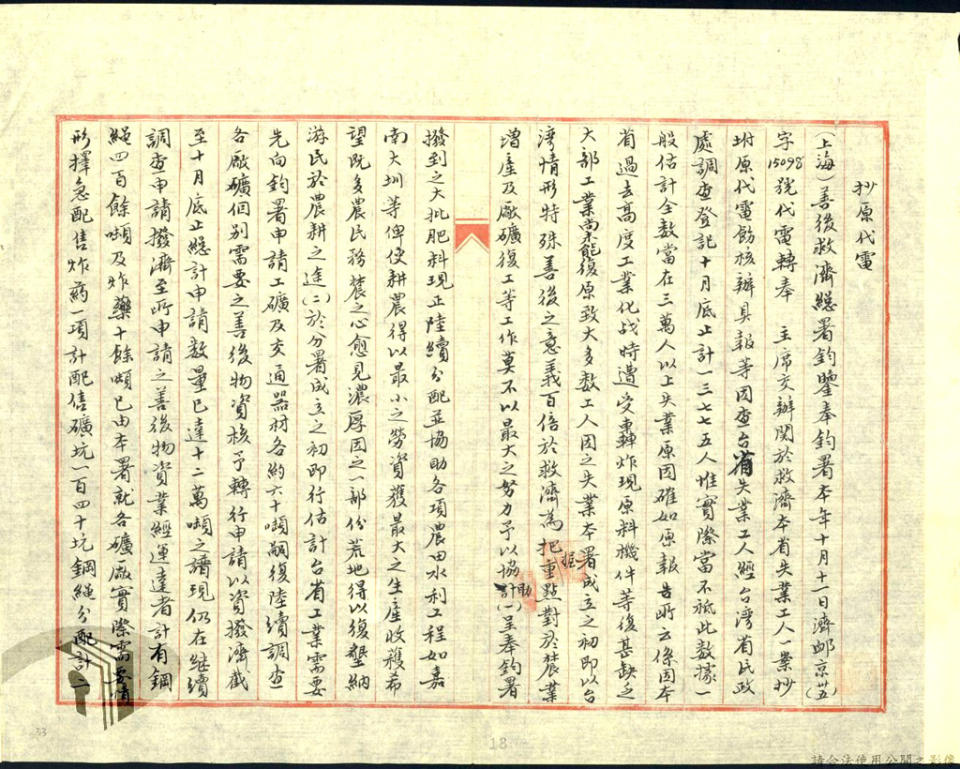 抄原代電
(上海)善後救濟總署鈞鑒奉鈞署本年十月十一日濟邮京(廿五)
字15098號代電轉奉 主席交辦關於救濟本省失業工人一案抄
坿原代電飭核辦具報等因查台省失業工人經台灣省民政
處調查登記十月底止計一三七七五人惟實際當不祇此數據一
般估計全數當在三萬人以上失業原因確如原報告所云係因本
省過去高度工業化战時遭受轟炸現原料機件等後甚缺乏
大部工業尚未能復原致大多數工人因之失業本署成立之初即以台
灣情形特殊善後之意義百倍於救濟為把重點對於農業
增產及厰礦復工等工作莫不以最大之努力予以協助計(一)呈奉鈞署
撥到之大批肥料現正陸續分配並協助各項農田水利工程如嘉
南大圳等俾使耕農得以最小之勞資獲最大之生產收穫希
望既多農民務農之心愈見濃厚因之一部份荒地得以復墾納
游民於農耕之途(二)於分署成立之初即行估計台省工業需要
先向鈞署申請工礦及交通器材各約六十噸嗣復陸續調查
各厰礦個別需要之善後物資核予轉行申請以資撥濟截
至十月底止總計申請數量已達十二萬噸之譜現仍在繼續
調查申請撥濟至所申請之善後物資業經運達者計有鋼
繩四百餘噸及炸藥十餘噸已由本署就各礦厰實際需要情
形擇急配售炸药一項計配售礦坑一百四十坑鋼繩分配計二
33
18
請合法使用公開之影像